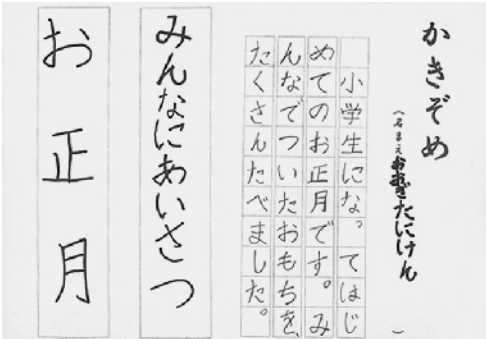 かきぞめ
(名まえ おおぎたにけん )
小学生になってはじ
めてのお正月です。み
んなでついたおもちを、
たくさんたべました。
みんなにあいさつ
お正月